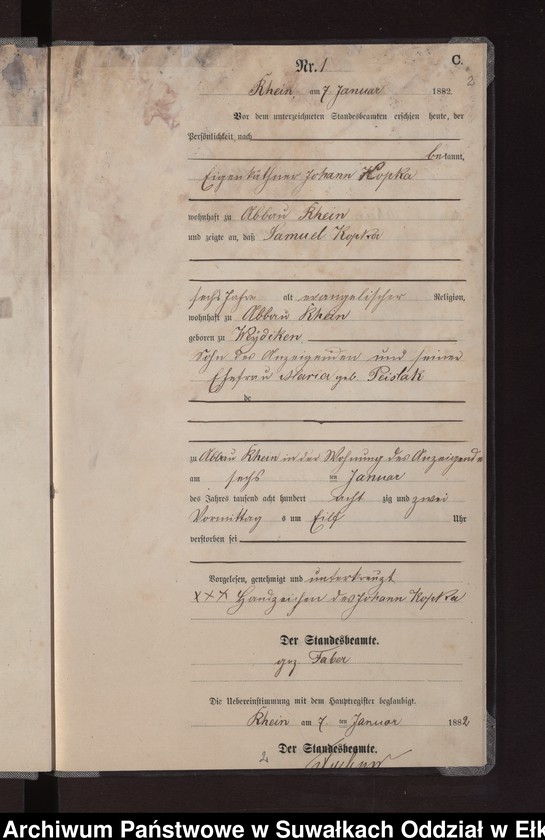 C.
Nr. 1
2
Rhein am 7 Januar 1882.
Vor dem unterzeichneten Standesbeamten erschien heute, der
Persönlichkeit nach
bekannt,
Eigenkäthner Johann Kopka
wohnhaft zu Abbau Rhein
und zeigte an, daß Samuel Kopka
sechs Jahre alt evangelischer Religion,
wohnhaft zu Abbau Rhein
geboren zu Weydiken
Sohn des Anzeigenden und seiner
Ehefrau Maria geb. Peislak
de
zu Abbau Rhein in der Wohnung des Anzeigende
am sechs ten Januar
des Jahres tausend acht hundert acht zig und zwei
Vormittag s um Eilf Uhr
verstorben sei
Vorgelesen, genehmigt und unterkreuzt
XXX Handzeichen des Johann Kopka
Der Standesbeamte.
gez Faber
Die Uebereinstimmung mit dem Hauptregister beglaubigt.
Rhein am 7. ten Januar 1882
Der Standesbeamte.
2
Archiwum Państwowe w Suwałkach Oddział w Ełk